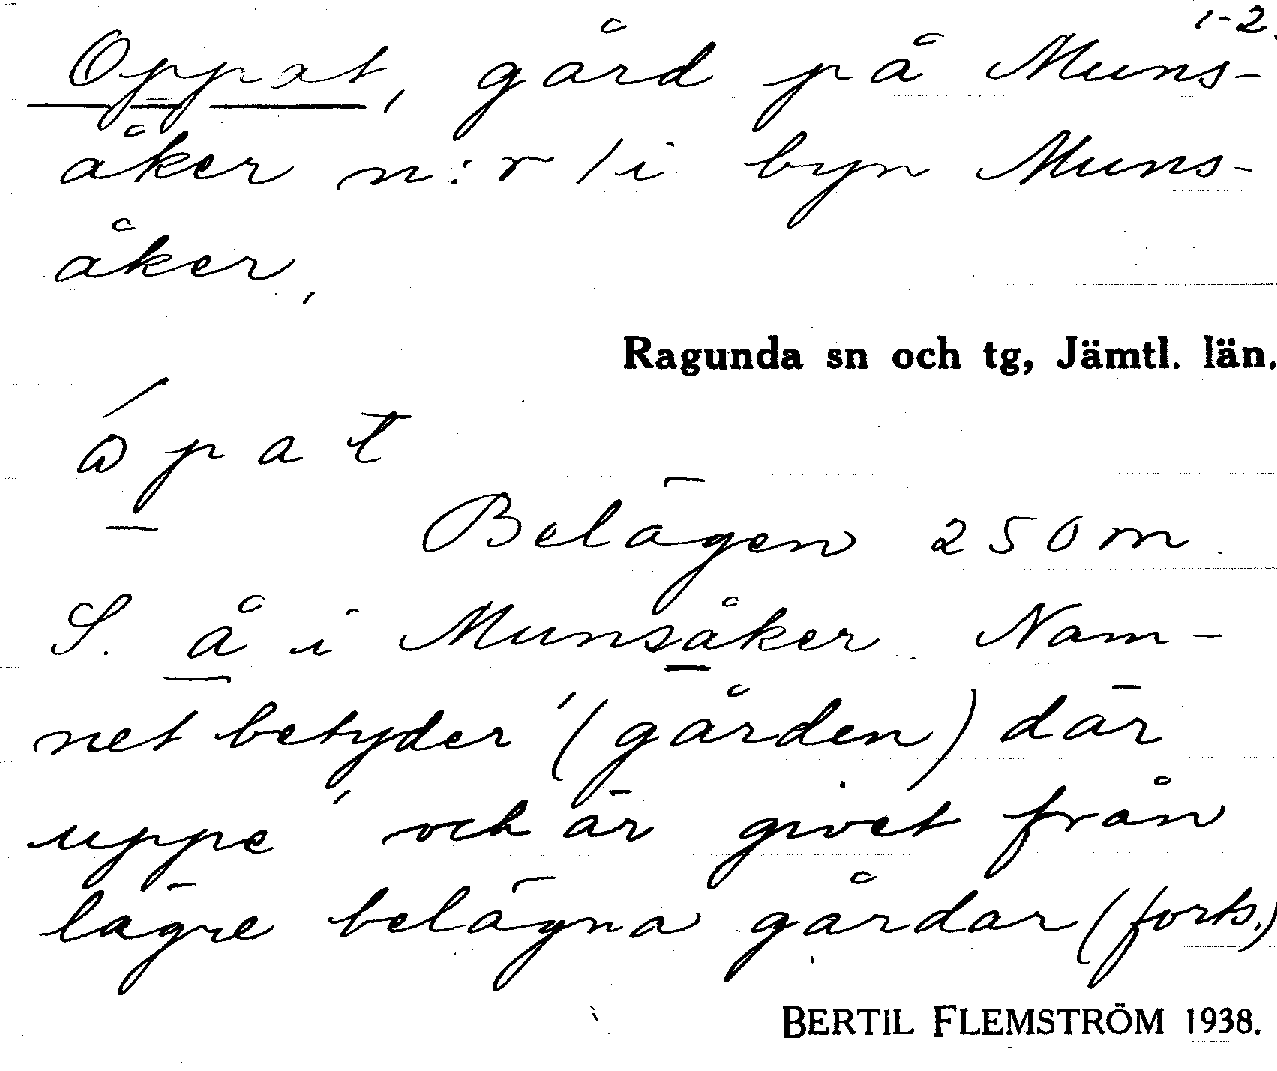 1-2.
Oppat, gård på Muns-
åker n:r 1 i byn Muns-
åker,
Ragunda sn och tg, Jämtl. län.
Belägen 250 m
S. å i Munsåker. Nam-
net betyder '(gården) där
uppe' och är givet från
lägre belägna gårdar (forts.)
BERTIL FLEMSTRÖM 1938.